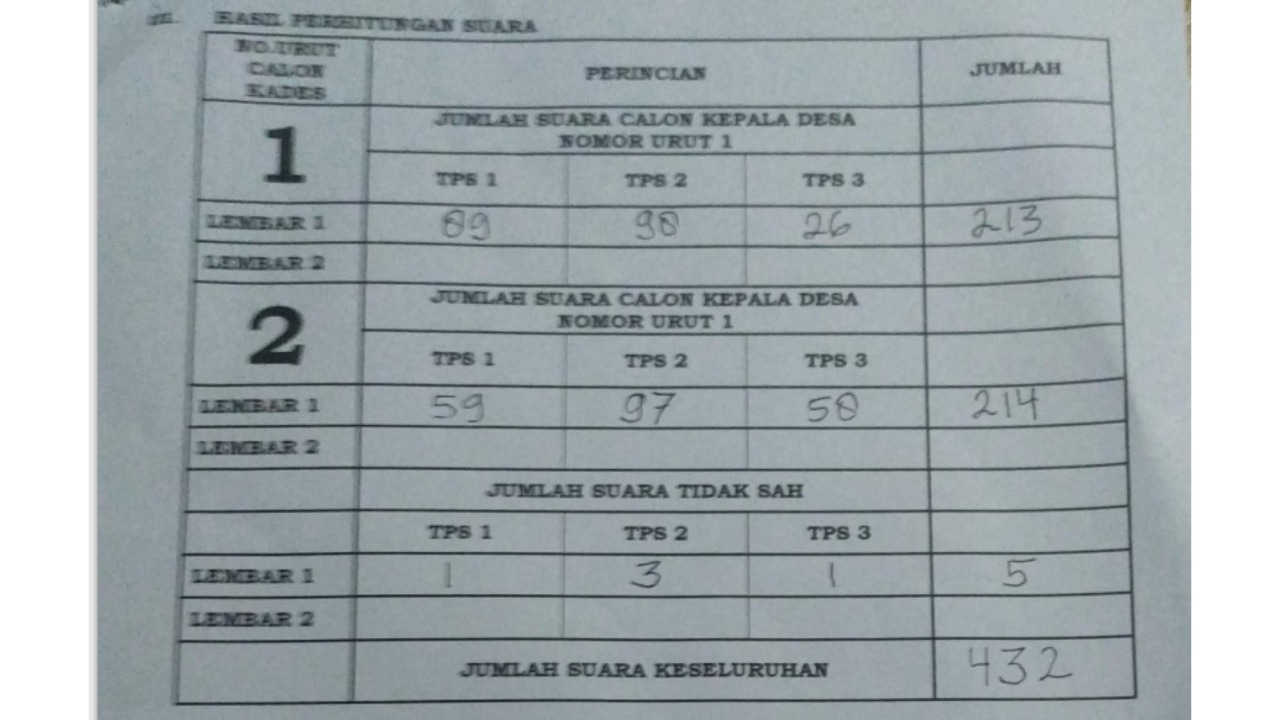 III. HASIL PERHITUNGAN SUARA
NO.URUT CALON KADES PERINCIAN JUMLAH
1 JUMLAH SUARA CALON KEPALA DESA
NOMOR URUT 1
TPS 1 TPS 2 TPS 3
LEMBAR 1 89 98 26 213
LEMBAR 2
2 JUMLAH SUARA CALON KEPALA DESA
NOMOR URUT 1
TPS 1 TPS 2 TPS 3
LEMBAR 1 59 97 58 214
LEMBAR 2
JUMLAH SUARA TIDAK SAH
TPS 1 TPS 2 TPS 3
LEMBAR 1 1 3 1 5
LEMBAR 2
JUMLAH SUARA KESELURUHAN 432